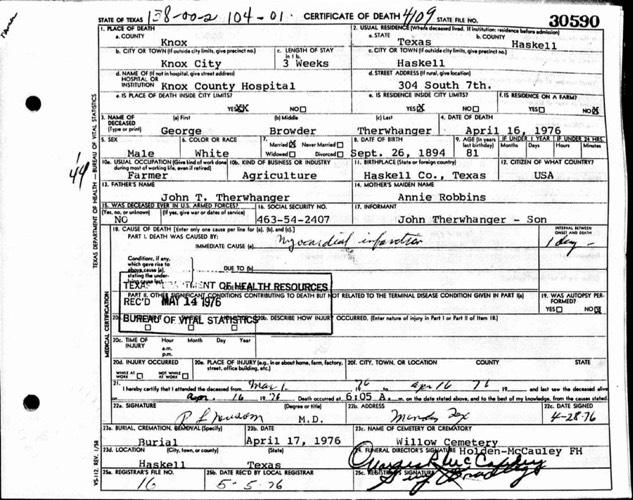 STATE OF TEXAS 138-00-2 104-01. CERTIFICATE OF DEATH 4109 STATE FILE NO. 30590
1. PLACE OF DEATH
a. COUNTY Knox
2. USUAL RESIDENCE (Where deceased lived. If institution: residence before admission)
a. STATE Texas b. COUNTY Haskell
b. CITY OR TOWN (If outside city limits, give precinct no.) Knox City
c. LENGTH OF STAY in 1b. 3 Weeks
c. CITY OR TOWN (If outside city limits, give precinct no.) Haskell
d. NAME OF (If not in hospital, give street address) HOSPITAL OR INSTITUTION Knox County Hospital
d. STREET ADDRESS (If rural, give location) 304 South 7th.
e. IS PLACE OF DEATH INSIDE CITY LIMITS? YES NO
e. IS RESIDENCE INSIDE CITY LIMITS? YES NO
f. IS RESIDENCE ON A FARM? YES NO
3. NAME OF DECEASED (Type or print)
(a) First (b) Middle (c) Last 4. DATE OF DEATH
George Browder Therwhanger April 16, 1976
5. SEX 6. COLOR OR RACE 7. Married Never Married Widowed Divorced 8. DATE OF BIRTH 9. AGE (In years last birthday) IF UNDER 1 YEAR IF UNDER 24 HRS.
Months Days Hours Minutes
Male White Sept. 26, 1894 81
10a. USUAL OCCUPATION (Give kind of work done during most of working life, even if retired) 10b. KIND OF BUSINESS OR INDUSTRY 11. BIRTHPLACE (State or foreign country) 12. CITIZEN OF WHAT COUNTRY?
Farmer Agriculture Haskell Co., Texas USA
13. FATHER'S NAME 14. MOTHER'S MAIDEN NAME
John T. Therwhanger Annie Robbins
15. WAS DECEASED EVER IN U.S. ARMED FORCES? 16. SOCIAL SECURITY NO. 17. INFORMANT
(Yes, no, or unknown) (If yes, give war or dates of service)
NO 463-54-2407 John Therwhanger - Son
18. CAUSE OF DEATH [Enter only one cause per line for (a), (b), and (c).]
PART I. DEATH WAS CAUSED BY:
INTERVAL BETWEEN ONSET AND DEATH
IMMEDIATE CAUSE (a) Myocardial infarction 1 day
Conditions, if any, which gave rise to above cause (a), stating the under-
DUE TO (b)
TEXAS DEPARTMENT OF HEALTH RESOURCES
REC'D MAY 14 1976
BUREAU OF VITAL STATISTICS
PART II. OTHER SIGNIFICANT CONDITIONS CONTRIBUTING TO DEATH BUT NOT RELATED TO THE TERMINAL DISEASE CONDITION GIVEN IN PART I(a)
19. WAS AUTOPSY PERFORMED? YES NO
20b. DESCRIBE HOW INJURY OCCURRED. (Enter nature of injury in Part I or Part II of Item 18.)
20c. TIME OF INJURY Hour Month Day Year
a.m.
p.m.
20d. INJURY OCCURRED WHILE AT WORK NOT WHILE AT WORK
20e. PLACE OF INJURY (e.g., in or about home, farm, factory, street, office building, etc.)
20f. CITY, TOWN, OR LOCATION COUNTY STATE
21. I hereby certify that I attended the deceased from Mar 1 76 to Apr 16 76 and last saw the deceased alive
on Apr. 16 1976 Death occurred at 6:05 A. m. on the date stated above, and to the best of my knowledge, from the causes stated.
22a. SIGNATURE (Degree or title) M.D.
22b. ADDRESS Munday Tex
22c. DATE SIGNED 4-28-76
23a. BURIAL, CREMATION, REMOVAL (Specify) 23b. DATE 23c. NAME OF CEMETERY OR CREMATORY
Burial April 17, 1976 Willow Cemetery
23d. LOCATION (City, town, or county) (State) 24. FUNERAL DIRECTOR'S SIGNATURE Holden-McCauley FH
Haskell Texas
25a. REGISTRAR'S FILE NO. 25b. DATE REC'D BY LOCAL REGISTRAR 25c. REGISTRAR'S SIGNATURE
16 5-5-76
TEXAS DEPARTMENT OF HEALTH — BUREAU OF VITAL STATISTICS
MEDICAL CERTIFICATION
VS-112, REV. 1/58